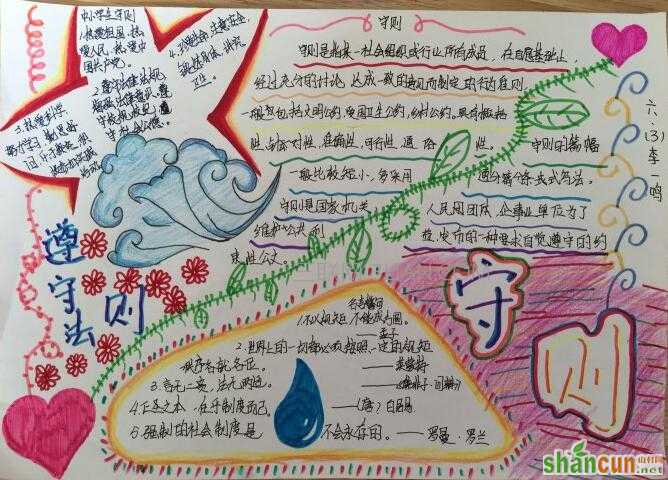 中小学生守则
1.热爱祖国,热
爱人民,热爱中
国共产党。
2.遵守法律法规,
增强法律意识,遵
守校规校纪,遵
守社会公德。
3.热爱科学,
努学学习,勤思好
4.珍爱生命,注意安全,
锻炼身体,讲究
卫生
守则
守则是指某一社会组织或行业所有成员,在自愿基础上,
经过充分的讨论,达成一致的意见而制定的行为准则,
一般包括文明公约,爱国卫生公约,乡村公约。具有概括
性,针对性,准确性,可行性,通俗性。 守则的篇幅
一般比较短小,多采用 通分篇分条式写法。
守则是国家机关 人民团体、企事业单位为了
维护公共利
益,发布的一种要求自觉遵守的约
束性公文。
六.(3)李一鸣
遵守法则
守则
名言警句
1.不以规矩,不能成方圆。
——孟子
2.世界上的一切都必须按照一定的规矩
秩序各就各位。 ——莱蒙特
3.言无二贵,法无两适。
4.正圣之本,在乎制度而已。 ——(唐)白居易
5.强制的社会制度是 不会永存的。——罗曼·罗兰
shancun.net
山村网